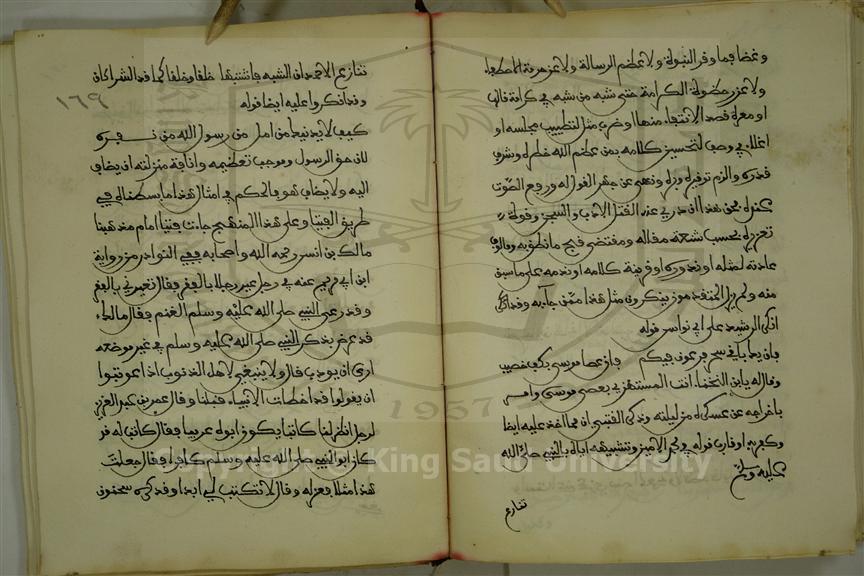 وغضا فما وقر النبوة ولا عظم الرسالة ولا عزر حرمة الاصطفاء
ولا عزز حظوة الكرامة حتى شبه من شبه في كرامة نالها
او معرة قصد الانتفاء منها او ضرب مثل لتطييب مجلسه او
اغلاء في وصف لتحسين كلامه بمن عظم الله خطره وشرف
قدره والزم توقيره وبره ونهى عن جهر القول له ورفع الصوت
عنده فحق هذا ان درئ عنه القتل الادب والسجن وقوة
تعزيره بحسب شنعة مقاله ومقتضى قبح ما نطق به ومالوف
عادته لمثله او ندوره او قرينة كلامه او ندمه على ما سبق
منه ولم يزل المتقدمون ينكرون مثل هذا ممن جاء به وقد
انكر الرشيد على ابي نواس قوله
فان يك باقي سحر فرعون فيكم فان عصا موسى بكف خصيب
وقال له يا ابن اللخناء انت المستهزئ بعصى موسى وامر
باخراجه عن عسكره من ليلته وذكر القتبي ان مما اخذ عليه ايضا
وكفر فيه او قارب قوله في محمد الامين وتشبيهه اياه بالنبي صلى الله
عليه وسلم
تنازع
١٦٩
تنازع الاحمدان الشبه فاشتبها خلقا وخلقا كما قد الشراكان
وقد انكروا عليه ايضا قوله
كيف لا يدنيك من امل من رسول الله من نفره
لان حق الرسول وموجب تعظيمه وانافة منزلته ان يضاف
اليه ولا يضاف هو فالحكم في امثال هذا ما بسطناه في
طريق الفتيا وعلى هذا المنهج جاءت فتيا امام مذهبنا
مالك بن انس رحمه الله واصحابه ففي النوادر من رواية
ابن ابي مريم عنه في رجل عير رجلا بالفقر فقال تعيرني بالفقر
وقد رعى النبي صلى الله عليه وسلم الغنم فقال مالك
قد عرض بذكر النبي صلى الله عليه وسلم في غير موضعه
ارى ان يودب قال ولا ينبغي لاهل الذنوب اذا عوتبوا
ان يقولوا قد اخطات الانبياء قبلنا وقال عمر بن عبد العزيز
لرجل انظر لنا كاتبا يكون ابوه عربيا فقال كاتب له قد
كان ابو النبي صلى الله عليه وسلم كافرا فقال جعلت
هذا مثلا فعزله وقال لا تكتب لي ابدا وقد كره سحنون
1957
Copyright © King Saud University